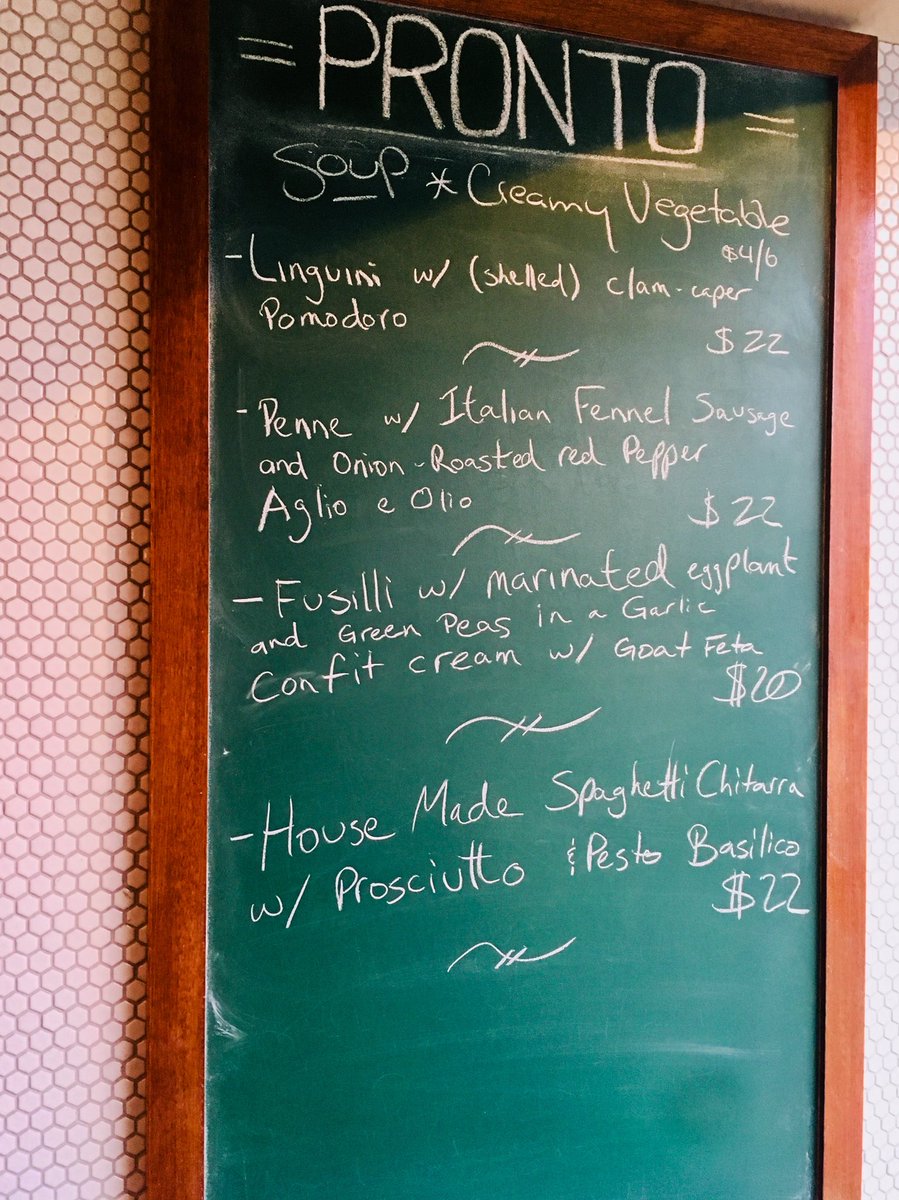 = PRONTO =
Soup * Creamy Vegetable
$4/6
- Linguini w/ (shelled) clam-caper
Pomodoro
$22
- Penne w/ Italian Fennel Sausage
and Onion-Roasted red Pepper
Aglio e Olio $22
- Fusilli w/ marinated eggplant
and Green Peas in a Garlic
Confit cream w/ Goat Feta
$20
- House Made Spaghetti Chitarra
w/ Prosciutto & Pesto Basilico
$22